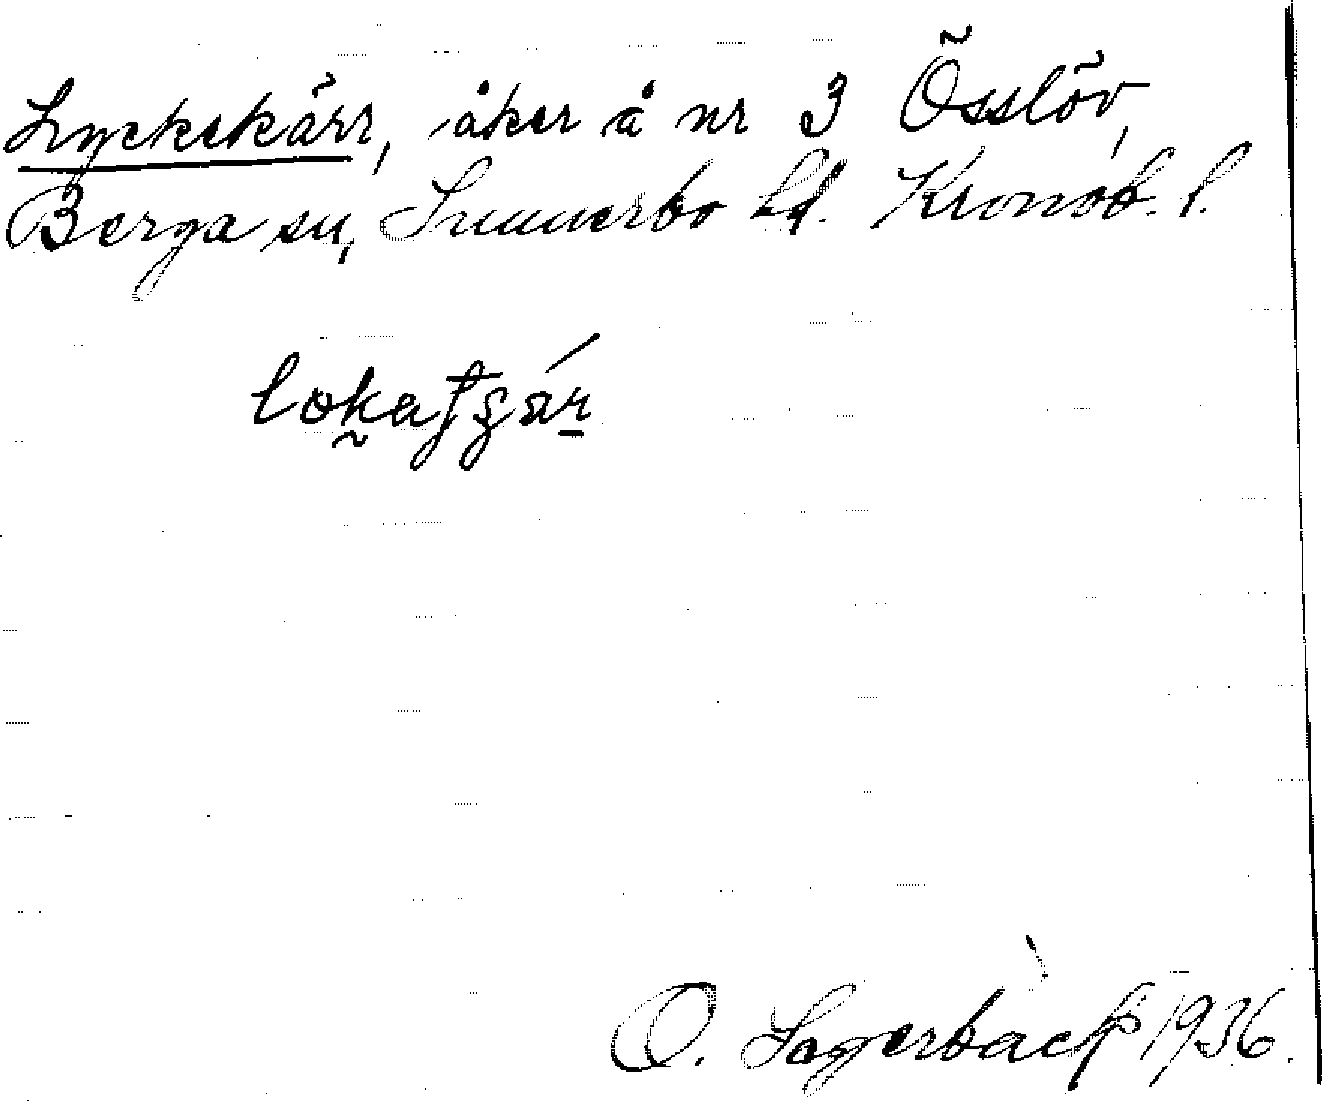 Lyckekärr, åker å nr 3 Össlöv,
Berga sn, Sunnerbo hd. Kronob. l.
O. Lagerbäck 1936.